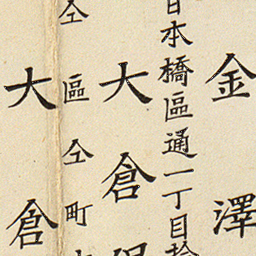 金澤
日本橋區通一丁目拾
大倉保
仝區仝町
大倉